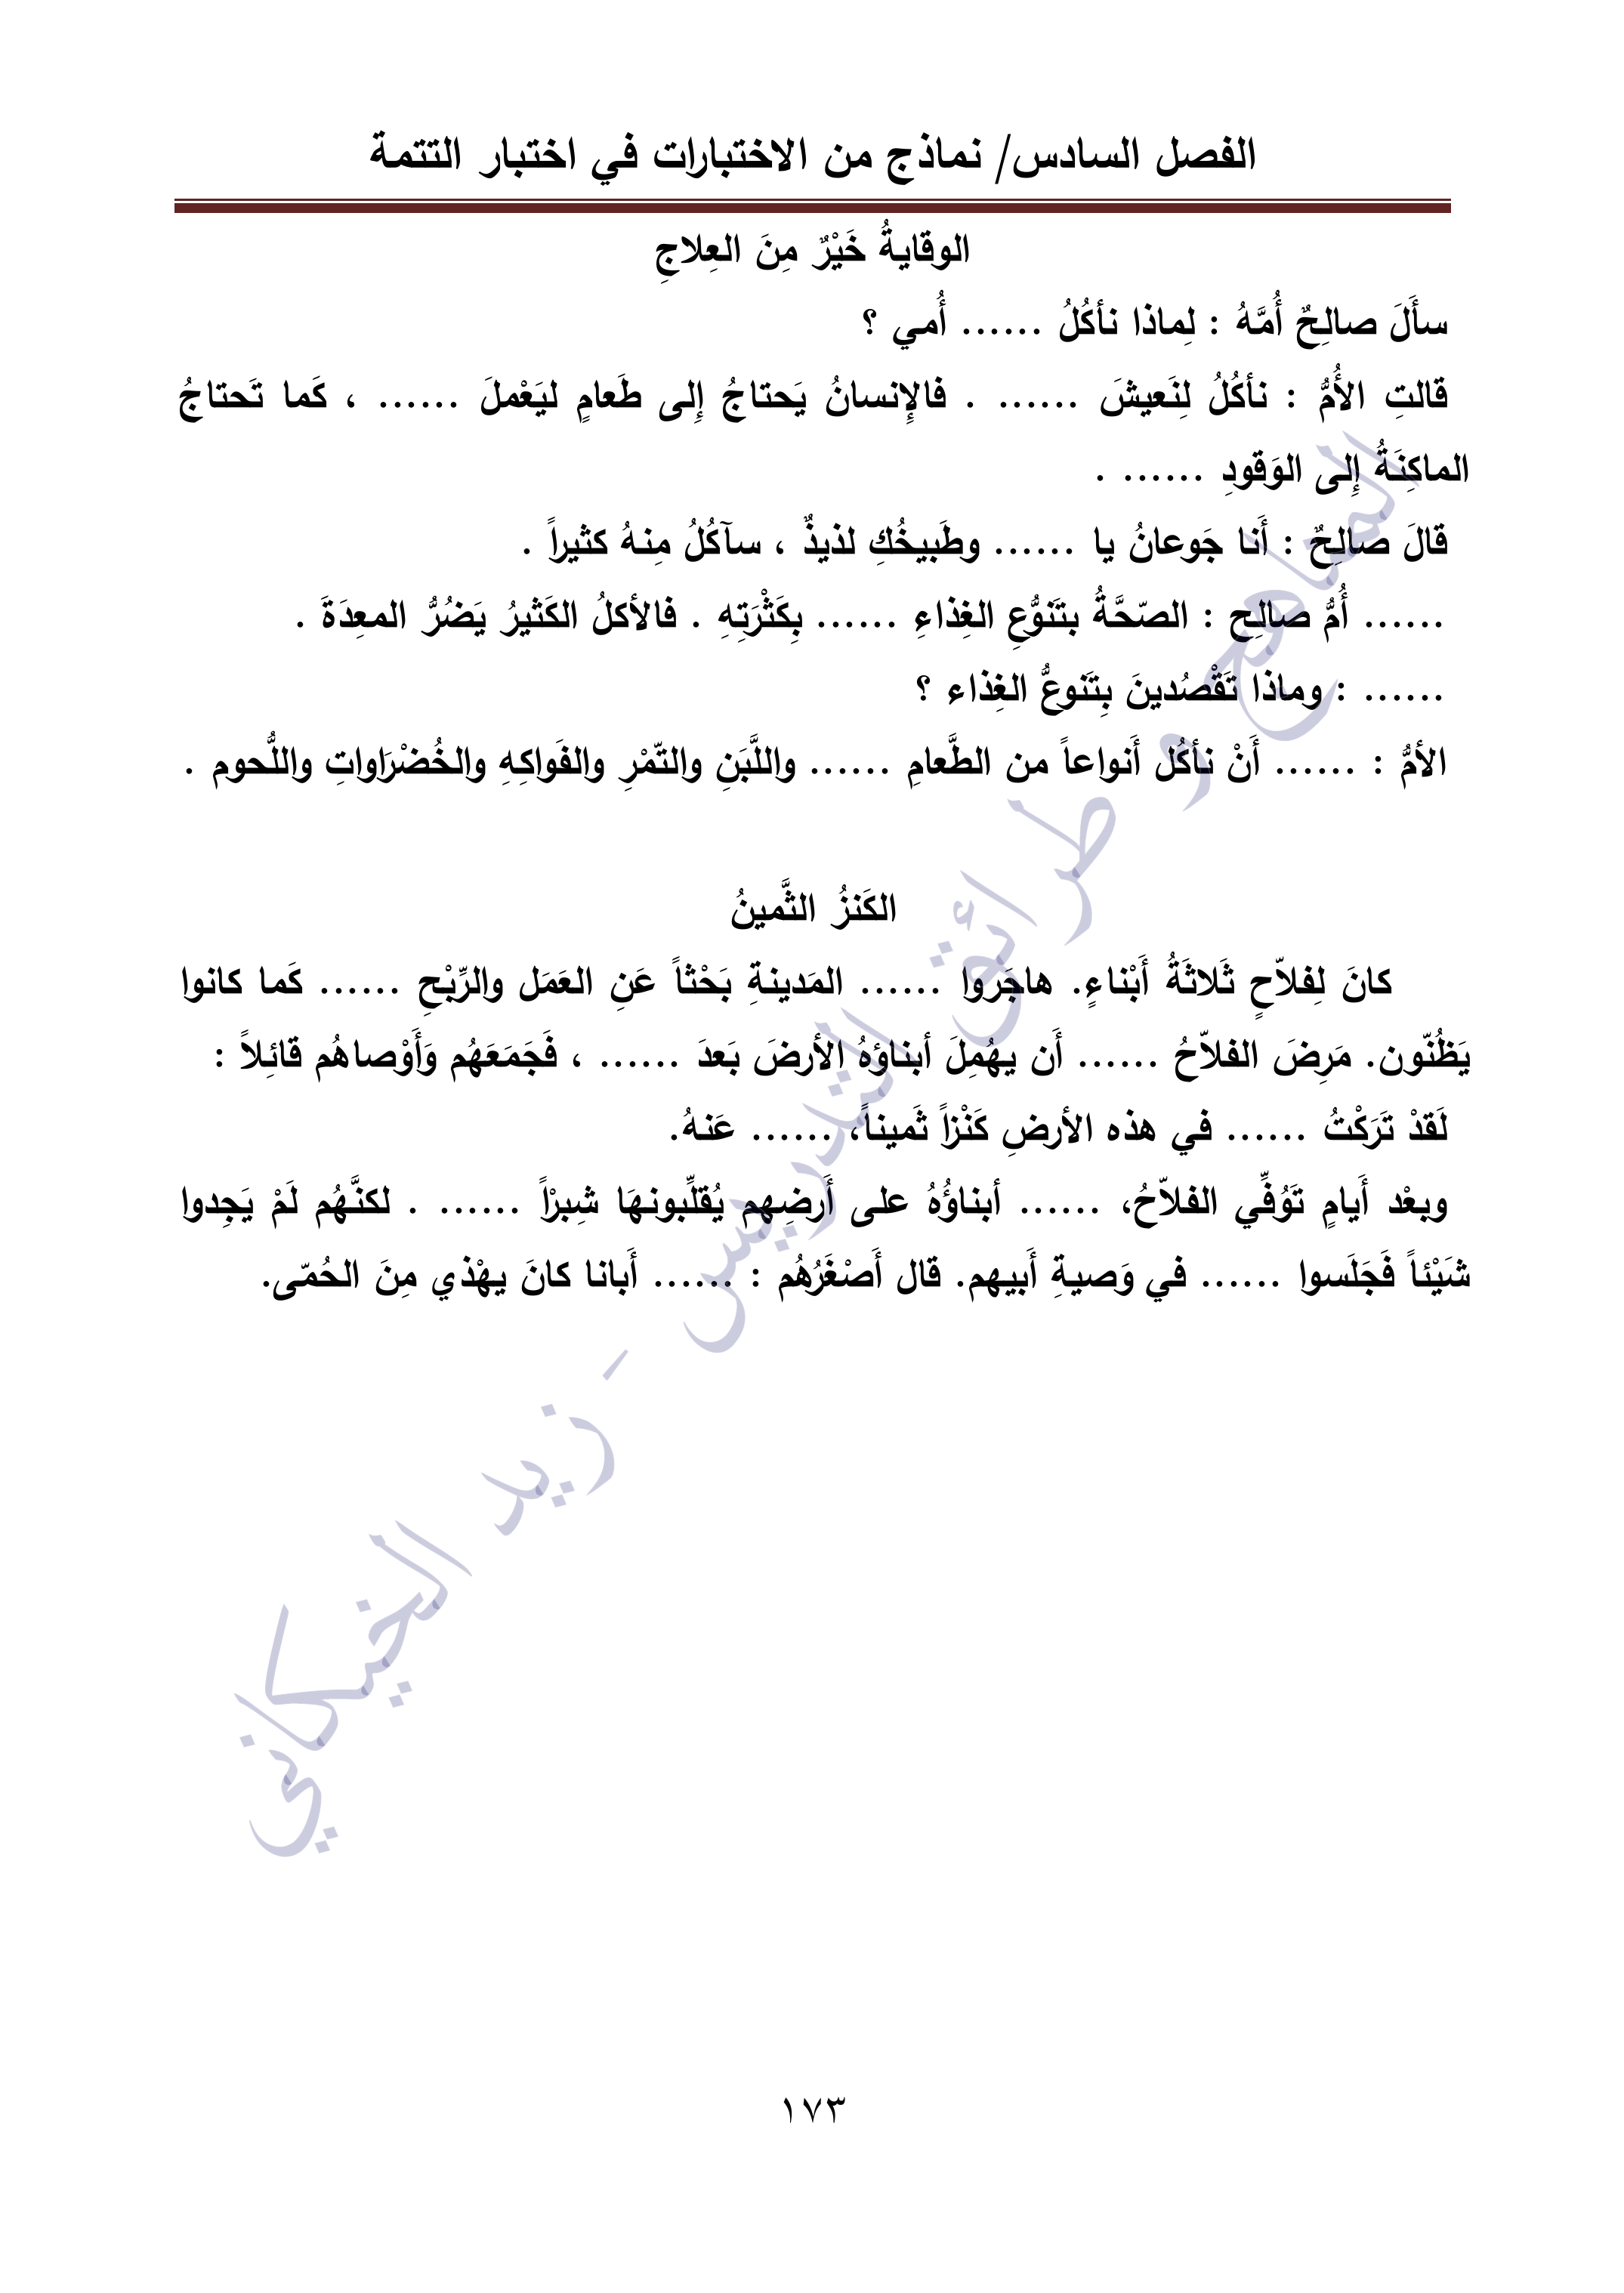 الفصل السادس/ نماذج من الاختبارات في اختبار التتمة
الوقايةُ خَيْرٌ مِنَ العِلاجِ
سأَلَ صالِحٌ أُمَّهُ : لِماذا نأكُلُ ...... أُمي ؟
قالتِ الأُمُّ : نأكُلُ لِنَعيشَ ...... . فالإِنسانُ يَحتاجُ إِلى طَعامٍ ليَعْملَ ...... ، كَما تَحتاجُ
الماكِنَةُ إِلى الوَقودِ ...... .
قالَ صالِحٌ : أَنا جَوعانُ يا ...... وطَبيخُكِ لذيذٌ ، سآكُلُ مِنهُ كثيراً .
...... أُمُّ صالِحِ : الصّحَّةُ بتَنوُّعِ الغِذاءِ ...... بِكَثْرَتِهِ . فالأكلُ الكَثيرُ يَضُرُّ المعِدَةَ .
...... : وماذا تَقْصُدينَ بِتَنوعُّ الغِذاء ؟
الأمُّ : ...... أَنْ نأكُل أَنواعاً من الطَّعامِ ...... واللَّبَنِ والتّمْرِ والفَواكِهِ والخُضْرَاواتِ واللُّحوم .
الكَنزُ الثَّمينُ
كانَ لِفلاّحٍ ثَلاثَةُ أَبْناءٍ. هاجَروا ...... المَدينةِ بَحْثاً عَنِ العَمَل والرِّبْحِ ...... كَما كانوا
يَظُنّون. مَرِضَ الفلاّحُ ...... أَن يهُمِلَ أبناؤهُ الأرضَ بَعدَ ...... ، فَجَمَعَهُم وَأَوْصاهُم قائِلاً :
لَقدْ تَرَكْتُ ...... في هذه الأرضِ كَنْزاً ثَميناً، ...... عَنهُ.
وبعْد أَيامٍ تَوُفِّي الفلاّحُ، ...... أبناؤُهُ على أَرضِهم يُقلِّبونهَا شِبرْاً ...... . لكنَّهُم لَمْ يَجِدوا
شَيْئاً فَجَلَسوا ...... في وَصيةِ أَبيهم. قال أَصْغَرُهُم : ...... أَبانا كانَ يهْذي مِنَ الحُمّى.
المناهج و طرائق التدريس - زيد الخيكاني
١٧٣